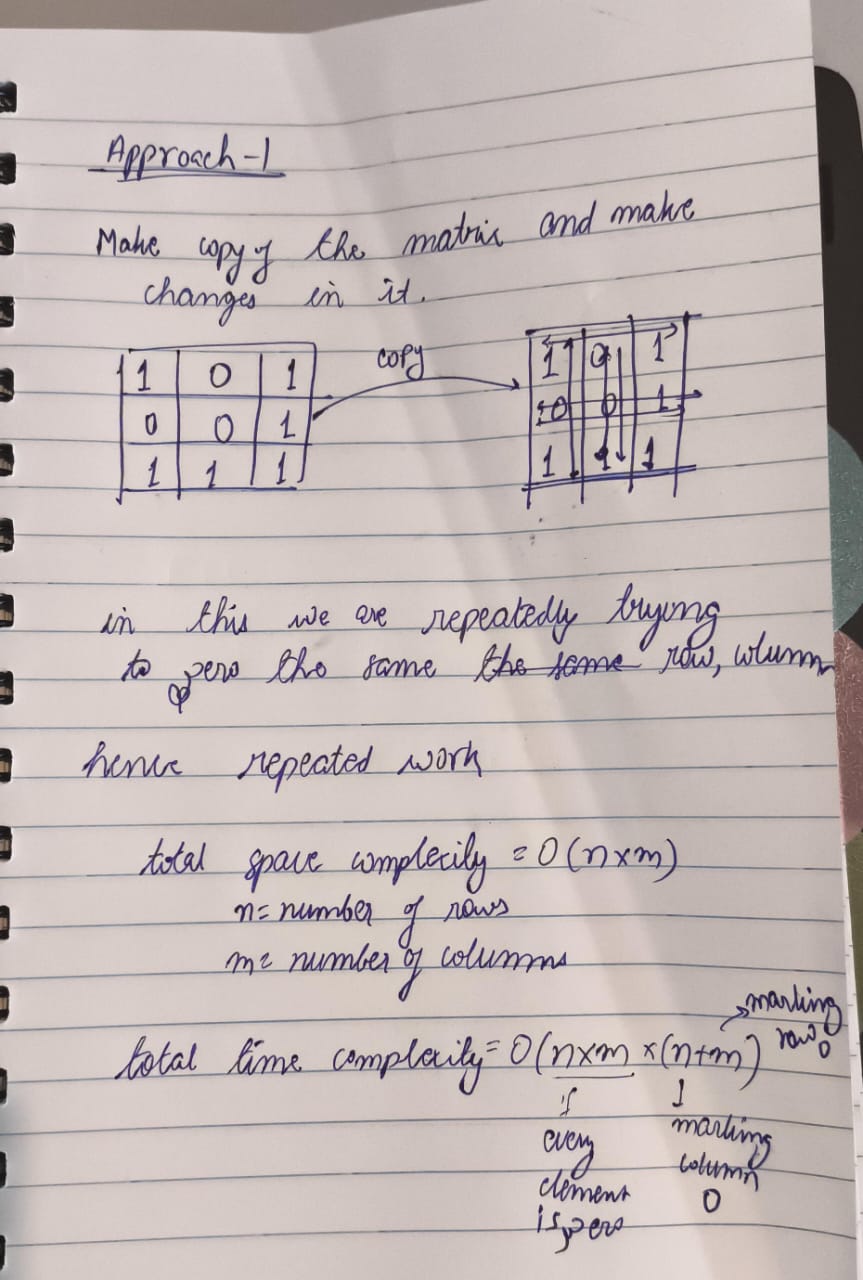 Approach-1
Make copy of the matrix and make
changes in it.
1 0 1
0 0 1
1 1 1
copy
1 0 1
0 0 1
1 1 1
in this we are repeatedly trying
to zero the same the same row, column
hence repeated work
total space complexity = O(n×m)
n= number of rows
m= number of columns
total time complexity= O(n×m ×(n+m)
marking
row 0
if
every
element
is zero
marking
column
0